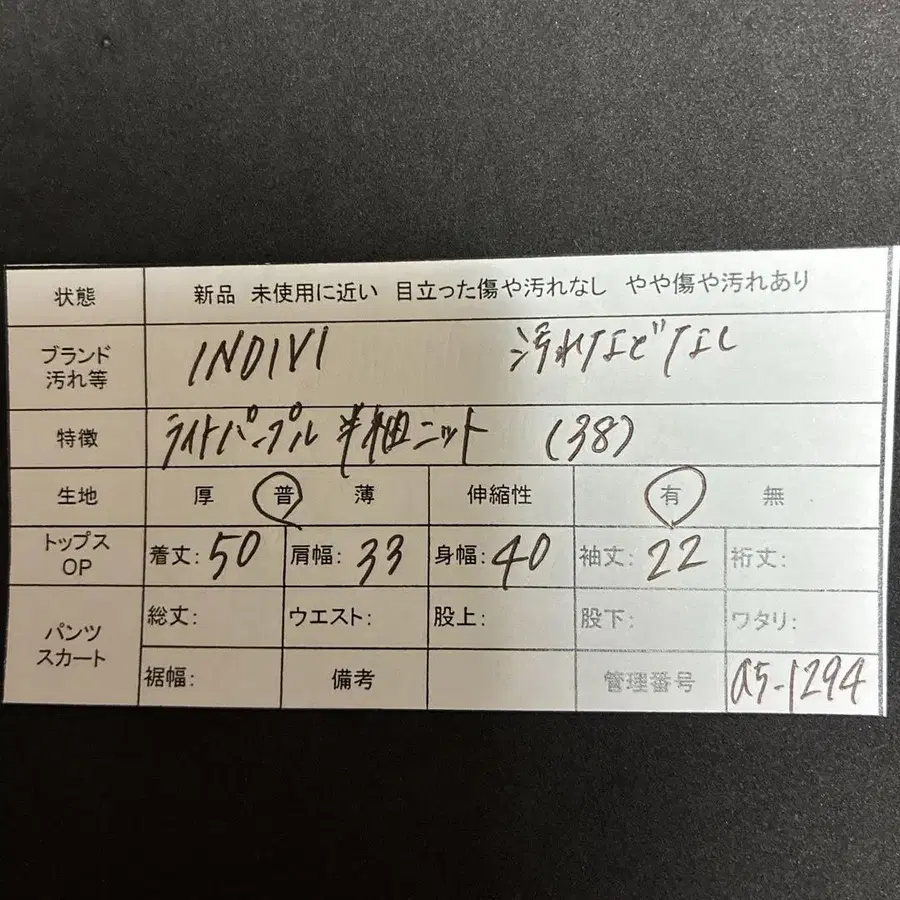 状態 新品 未使用に近い 目立った傷や汚れなし やや傷や汚れあり
ブランド
汚れ等 INDIVI 汚れなどなし
特徴 ライトパープル 半袖ニット (38)
生地 厚 普 薄 伸縮性 有 無
トップス
OP 着丈: 50 肩幅: 33 身幅: 40 袖丈: 22 裄丈:
パンツ
スカート 総丈: ウエスト: 股上: 股下: ワタリ:
裾幅: 備考 管理番号 a5-1294